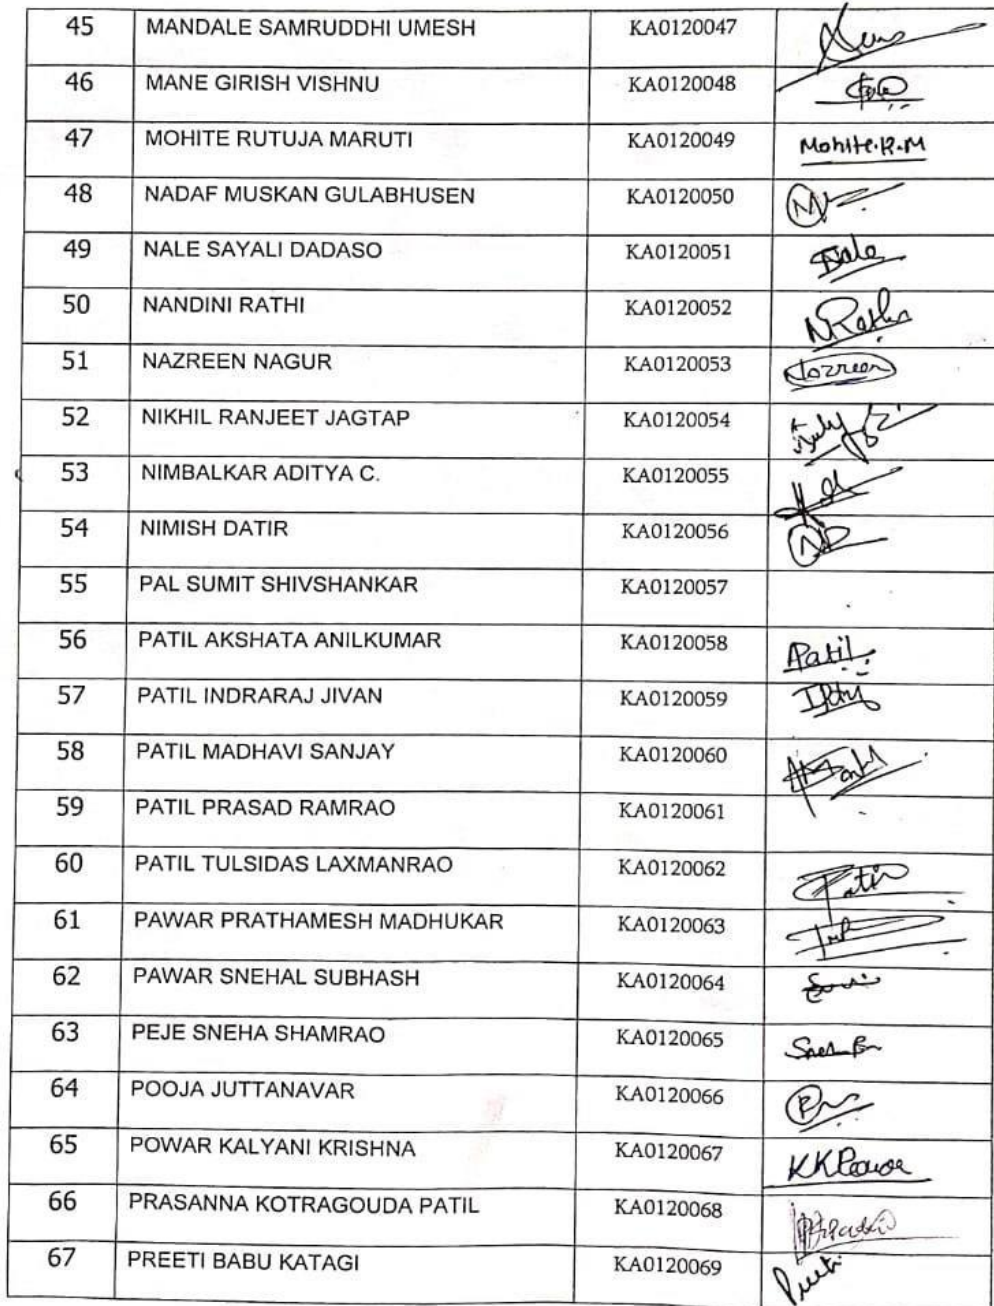 45 MANDALE SAMRUDDHI UMESH KA0120047
46 MANE GIRISH VISHNU KA0120048
47 MOHITE RUTUJA MARUTI KA0120049 Mohite.R.M
48 NADAF MUSKAN GULABHUSEN KA0120050
49 NALE SAYALI DADASO KA0120051
50 NANDINI RATHI KA0120052 NRathi
51 NAZREEN NAGUR KA0120053 Nazreen
52 NIKHIL RANJEET JAGTAP KA0120054
53 NIMBALKAR ADITYA C. KA0120055
54 NIMISH DATIR KA0120056
55 PAL SUMIT SHIVSHANKAR KA0120057
56 PATIL AKSHATA ANILKUMAR KA0120058 Patil
57 PATIL INDRARAJ JIVAN KA0120059
58 PATIL MADHAVI SANJAY KA0120060
59 PATIL PRASAD RAMRAO KA0120061
60 PATIL TULSIDAS LAXMANRAO KA0120062
61 PAWAR PRATHAMESH MADHUKAR KA0120063
62 PAWAR SNEHAL SUBHASH KA0120064
63 PEJE SNEHA SHAMRAO KA0120065
64 POOJA JUTTANAVAR KA0120066
65 POWAR KALYANI KRISHNA KA0120067
66 PRASANNA KOTRAGOUDA PATIL KA0120068
67 PREETI BABU KATAGI KA0120069 Preeti